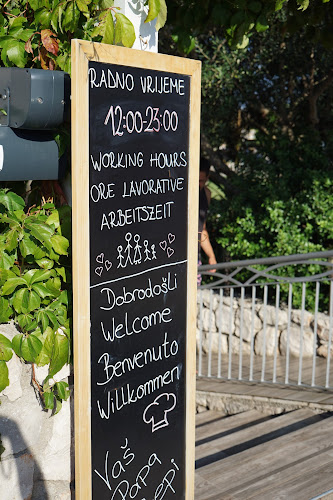 RADNO VRIJEME
12:00-23:00
WORKING HOURS
ORE LAVORATIVE
ARBEITSZEIT
Dobrodošli
Welcome
Benvenuto
Willkommen
Vaš
Papa